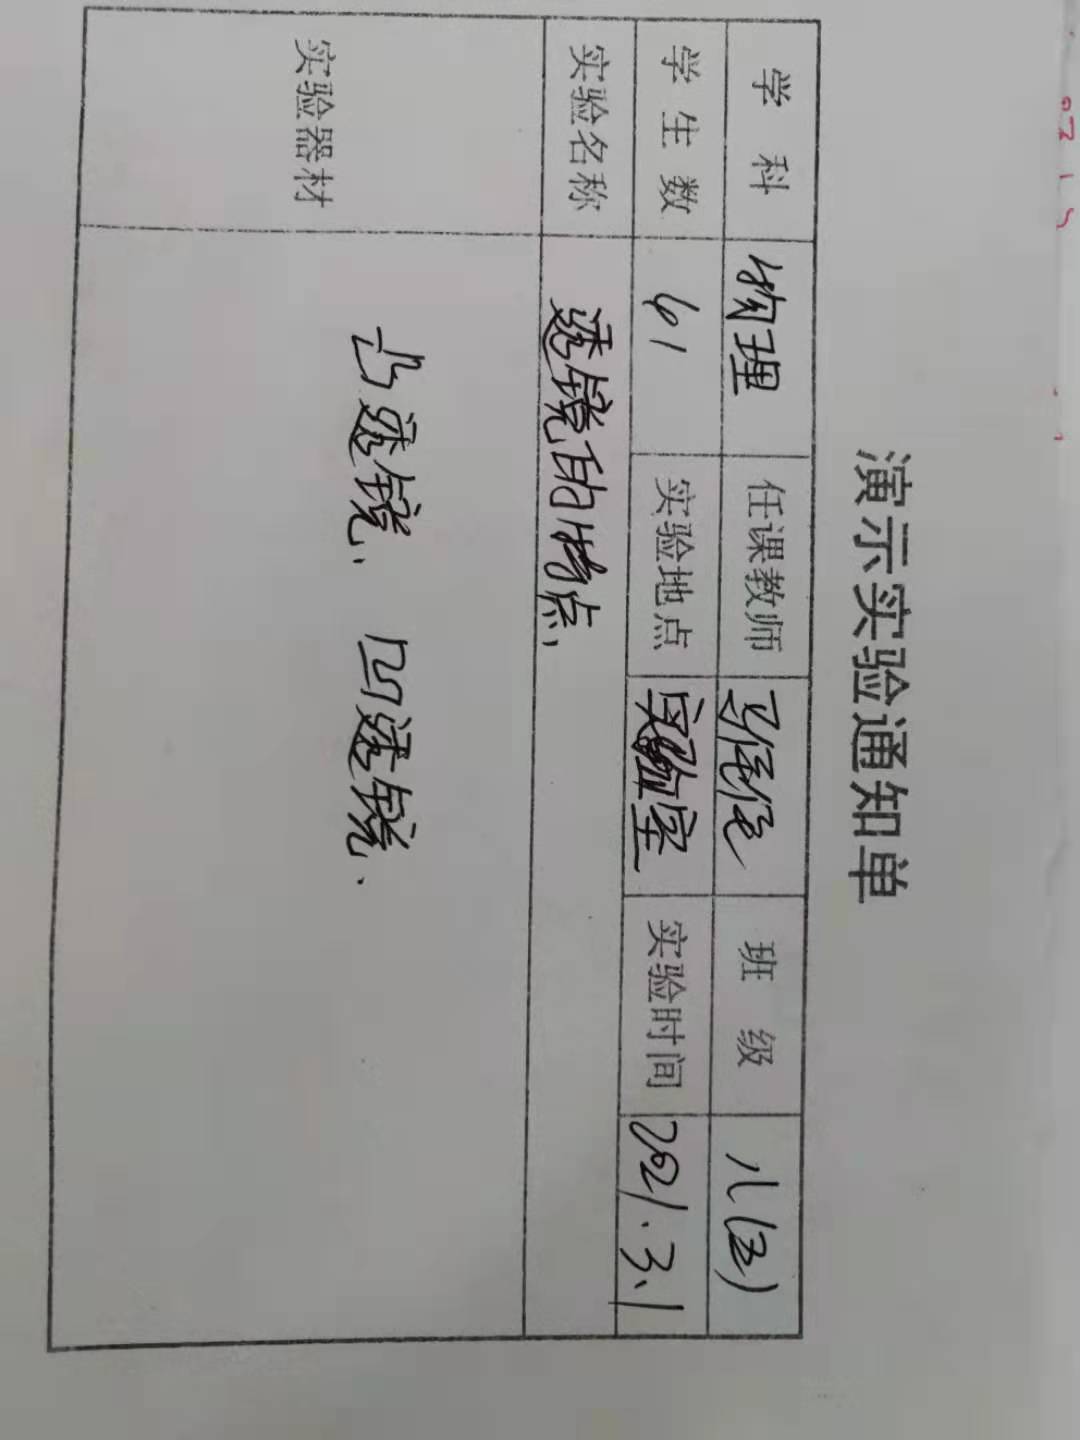 演示实验通知单
学科 物理 任课教师 班级 八(五)
学生数 61 实验地点 实验室 实验时间 2021.3.1
实验名称 透镜的特点、
实验器材 凸透镜、凹透镜、